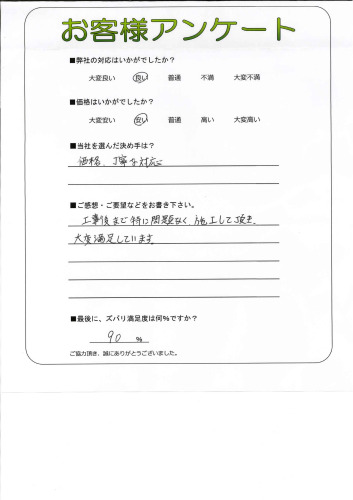 お客様アンケート
■弊社の対応はいかがでしたか？
大変良い 良い 普通 不満 大変不満
■価格はいかがでしたか？
大変安い 安い 普通 高い 大変高い
■当社を選んだ決め手は？
価格、丁寧な対応
■ご感想・ご要望などをお書き下さい。
工事後まで特に問題なく、施工して頂き、
大変満足しています。
■最後に、ズバリ満足度は何％ですか？
90 ％
ご協力頂き、誠にありがとうございました。